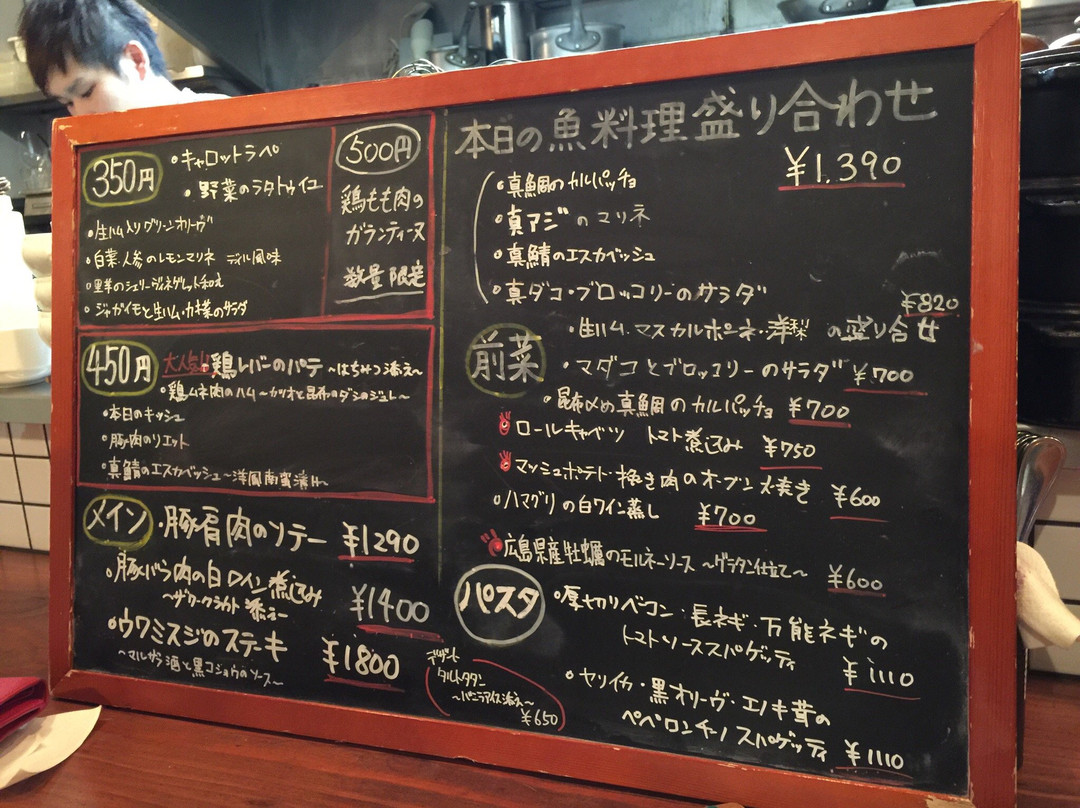 350円
・キャロットラペ
・野菜のラタトゥイユ
・生ハム入りグリーンオリーヴ
・白菜、人参のレモンマリネ ディル風味
のシェリーヴィネグレット和え
・ジャガイモと生ハム・カ様のサラダ
500円
鶏もも肉の
ガランティーヌ
数量限定
450円
大人気!!鶏レバーのパテ~はちみつ添え~
・鶏ムネ肉のハム~カツオと昆布のダシのジュレ~
・本日のキッシュ
・豚肉のリエット
・真鯖のエスカベッシュ~洋風南蛮漬け~
メイン
・豚肩肉のソテー ¥1290
・豚バラ肉の白ワイン煮込み
~ザワークラウト添え~ ¥1400
・ウワミスジのステーキ
~マルサラ酒と黒コショウのソース~ ¥1800
デザート
タルトタタン
~バニラアイス添え~
¥650
本日の魚料理盛り合わせ
¥1,390
・真鯛のカルパッチョ
・真アジのマリネ
・真鯖のエスカベッシュ
・真ダコ・ブロッコリーのサラダ
前菜
・生ハム・マスカルポーネ・洋梨の盛り合せ ¥820
・マダコとブロッコリーのサラダ ¥700
・昆布〆め真鯛のカルパッチョ ¥700
ロールキャベツ トマト煮込み ¥750
マッシュポテト・挽き肉のオーブン焼き ¥600
・ハマグリの白ワイン蒸し ¥700
広島県産牡蠣のモルネーソース~グラタン仕立て~ ¥600
パスタ
・厚切りベーコン・長ネギ・万能ネギの
トマトソーススパゲッティ ¥1110
・ヤリイカ・黒オリーヴ・エノキ茸の
ペペロンチーノスパゲッティ ¥1110